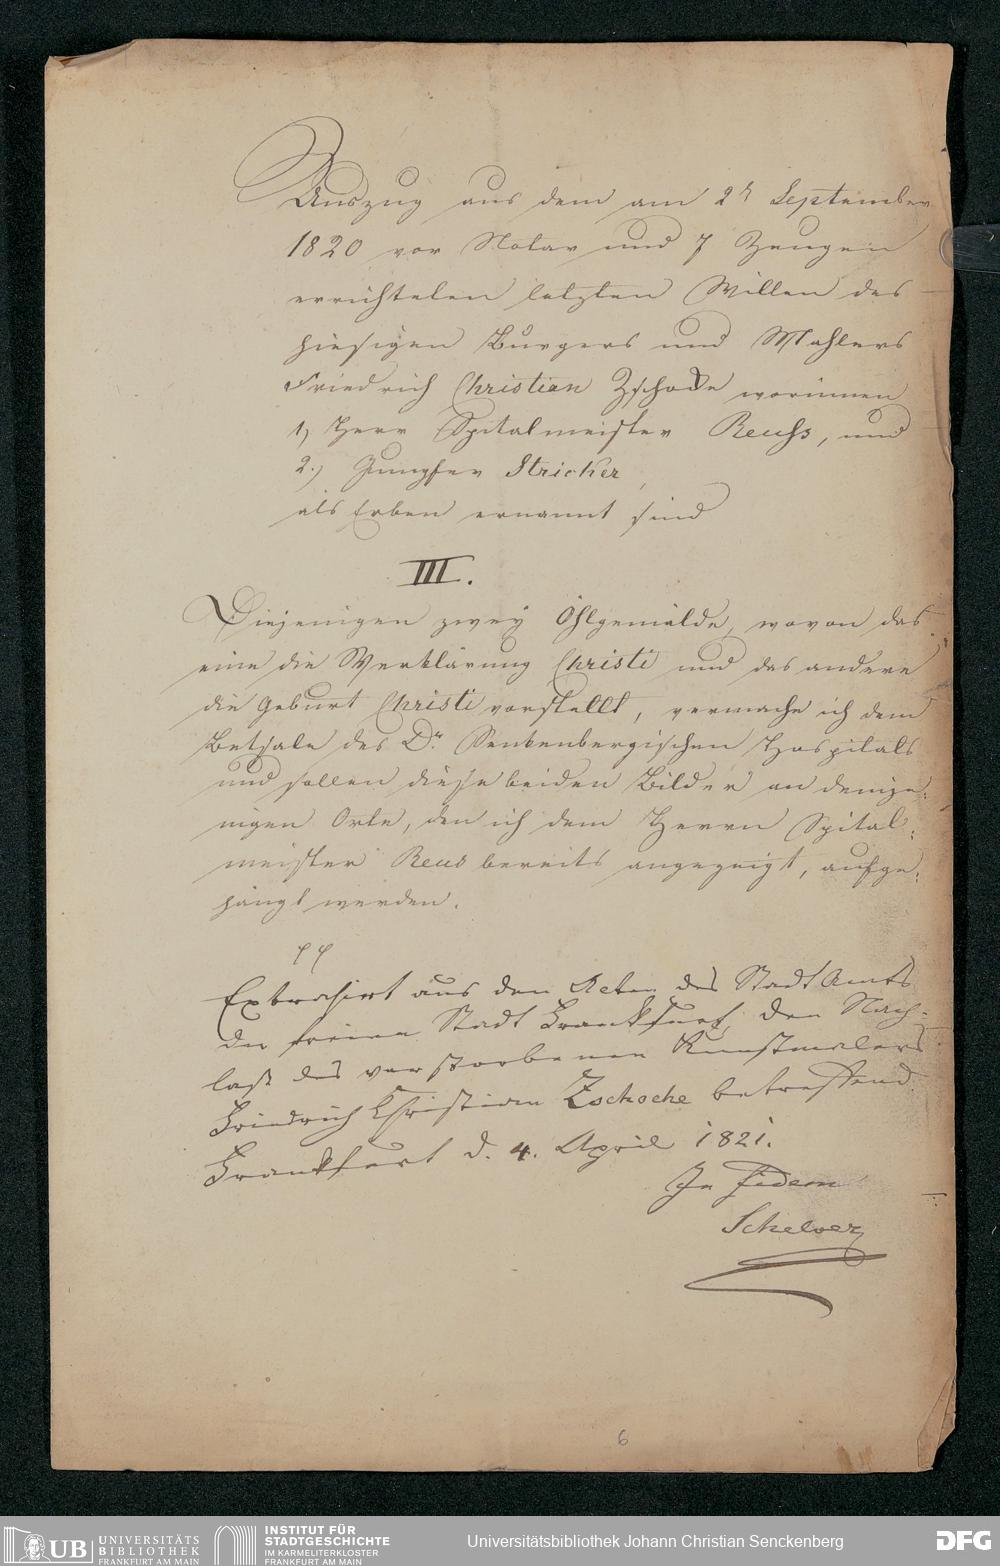 Auszug aus dem am 2n September
1820 vor Notar und 7 Zeugen
errichteten letzten Willen des
hiesigen Burgers und Mahlers
Friedrich Christian Zschoke worinnen
1) Herr Spitalmeister Reuss, und
2.) Jungfer Stricker,
als Erben ernannt sind
III.
Diejenigen zwey Öhlgemälde, wovon das
eine die Verklärung Christi und das andere
die Geburt Christi vorstellt, vermache ich dem
Betsale des Dr. Senkenbergischen Hospitals
und sollen diese beiden Bilder an demje:
nigen Orte, den ich dem Herrn Spital:
meister Reus bereits angezeigt, aufge:
hängt werden.
pp
Extrahirt aus den Acten des Stadt Amts
der freien Stadt Frankfurt, den Nach-
laß des verstorbenen Kunstmalers
Friedrich Christian Zschoche betreffend.
Frankfurt d. 4. April 1821.
In fidem
Schelver
6
UB UNIVERSITÄTS
BIBLIOTHEK
FRANKFURT AM MAIN
INSTITUT FÜR
STADTGESCHICHTE
IM KARMELITERKLOSTER
FRANKFURT AM MAIN
Universitätsbibliothek Johann Christian Senckenberg
DFG